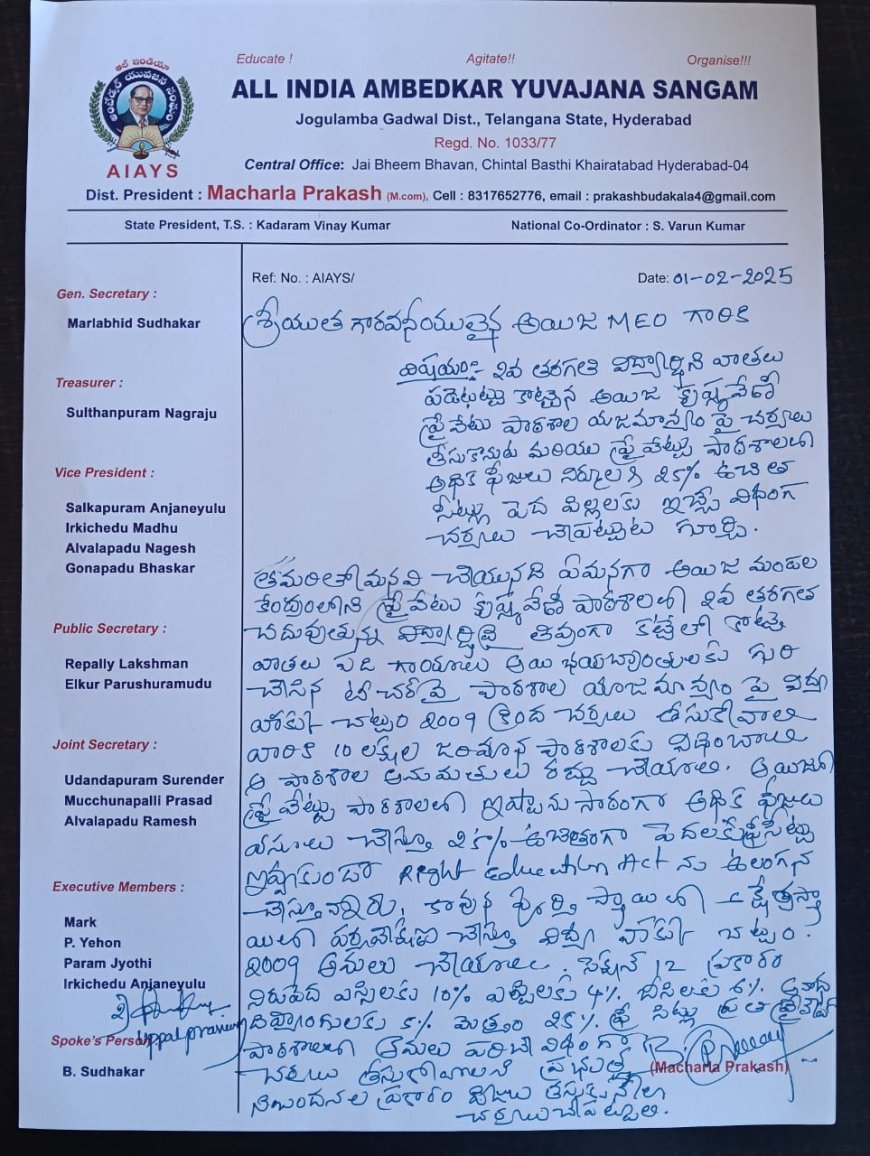 Educate ! Agitate!! Organise!!!
ఆల్ ఇండియా
అంబేద్కర్ యువజన సంఘం
AIAYS
ALL INDIA AMBEDKAR YUVAJANA SANGAM
Jogulamba Gadwal Dist., Telangana State, Hyderabad
Regd. No. 1033/77
Central Office: Jai Bheem Bhavan, Chintal Basthi Khairatabad Hyderabad-04
Dist. President : Macharla Prakash (M.com), Cell : 8317652776, email : prakashbudakala4@gmail.com
State President, T.S. : Kadaram Vinay Kumar National Co-Ordinator : S. Varun Kumar
Gen. Secretary :
Marlabhid Sudhakar
Treasurer :
Sulthanpuram Nagraju
Vice President :
Salkapuram Anjaneyulu
Irkichedu Madhu
Alvalapadu Nagesh
Gonapadu Bhaskar
Public Secretary :
Repally Lakshman
Elkur Parushuramudu
Joint Secretary :
Udandapuram Surender
Mucchunapalli Prasad
Alvalapadu Ramesh
Executive Members :
Mark
P. Yehon
Param Jyothi
Irkichedu Anjaneyulu
Spoke's Person
B. Sudhakar
Ref: No. : AIAYS/ Date: 01-02-2025
శ్రీయుత గౌరవనీయులైన అయిజ MEO గారికి
విషయం:- 2వ తరగతి విద్యార్థిని వాతలు
పడేటట్టు కొట్టిన అయిజ కృష్ణవేణి
ప్రైవేటు పాఠశాల యజమాన్యం పై చర్యలు
తీసుకొనుట మరియు ప్రైవేట్టు పాఠశాలలో
అధిక ఫీజులు నిర్మూలకి 25% ఉచిత
సీట్లు పేద పిల్లలకు ఇచ్చే విధంగా
చర్యలు చేపట్టుట గూర్చి.
తమరితో మనవి చేయునది ఏమనగా అయిజ మండల
కేంద్రంలోని ప్రైవేటు కృష్ణవేణి పాఠశాలలో 2వ తరగతి
చదువుతున్న విద్యార్థిని తీవ్రంగా కట్టెతో కొట్టి
వాతలు పడి గాయాలు అయి భయబ్రాంతులకు గురి
చేసిన టీచర్ పై పాఠశాల యాజమాన్యం పై విద్యా
హక్కు చట్టం 2009 క్రింద చర్యలు తీసుకోవాలి
వారికి 10 లక్షల జరిమాన పాఠశాలకు విధించాలి
ఆ పాఠశాల అనుమతులు రద్దు చేయాలి. అయిజలో
ప్రైవేట్టు పాఠశాలలో ఇష్టానుసారంగా అధిక ఫీజులు
వసూలు చేస్తూ 25% ఉచితంగా పేదలకు ఫ్రీ సీట్లు
ఇవ్వకుండా Right Education Act ను ఉలంగన
చేస్తూవున్నారు, కావున పూర్తి స్థాయిలో క్షేత్రస్థా
యిలో పర్యవేక్షణ చేస్తూ విద్యా హక్కు చట్టం
2009 అమలు చేయాలి, సెక్షన్ 12 ప్రకారం
నిరుపేద ఎస్సిలకు 10% ఎస్టిలకు 4% బీసిలకు 6%
దివ్యాంగులకు 5% మొత్తం 25% ఫ్రీ సీట్లు ప్రతి ప్రైవేట్
పాఠశాలలో అమలు పరిచే విధంగా
చర్యలు తీసుకోవాలని ప్రభుత్వ
నిబందనల ప్రకారం ఫీజులు తీసుకునేలా
చర్యలు చేపట్టాలి.
(Macharla Prakash)